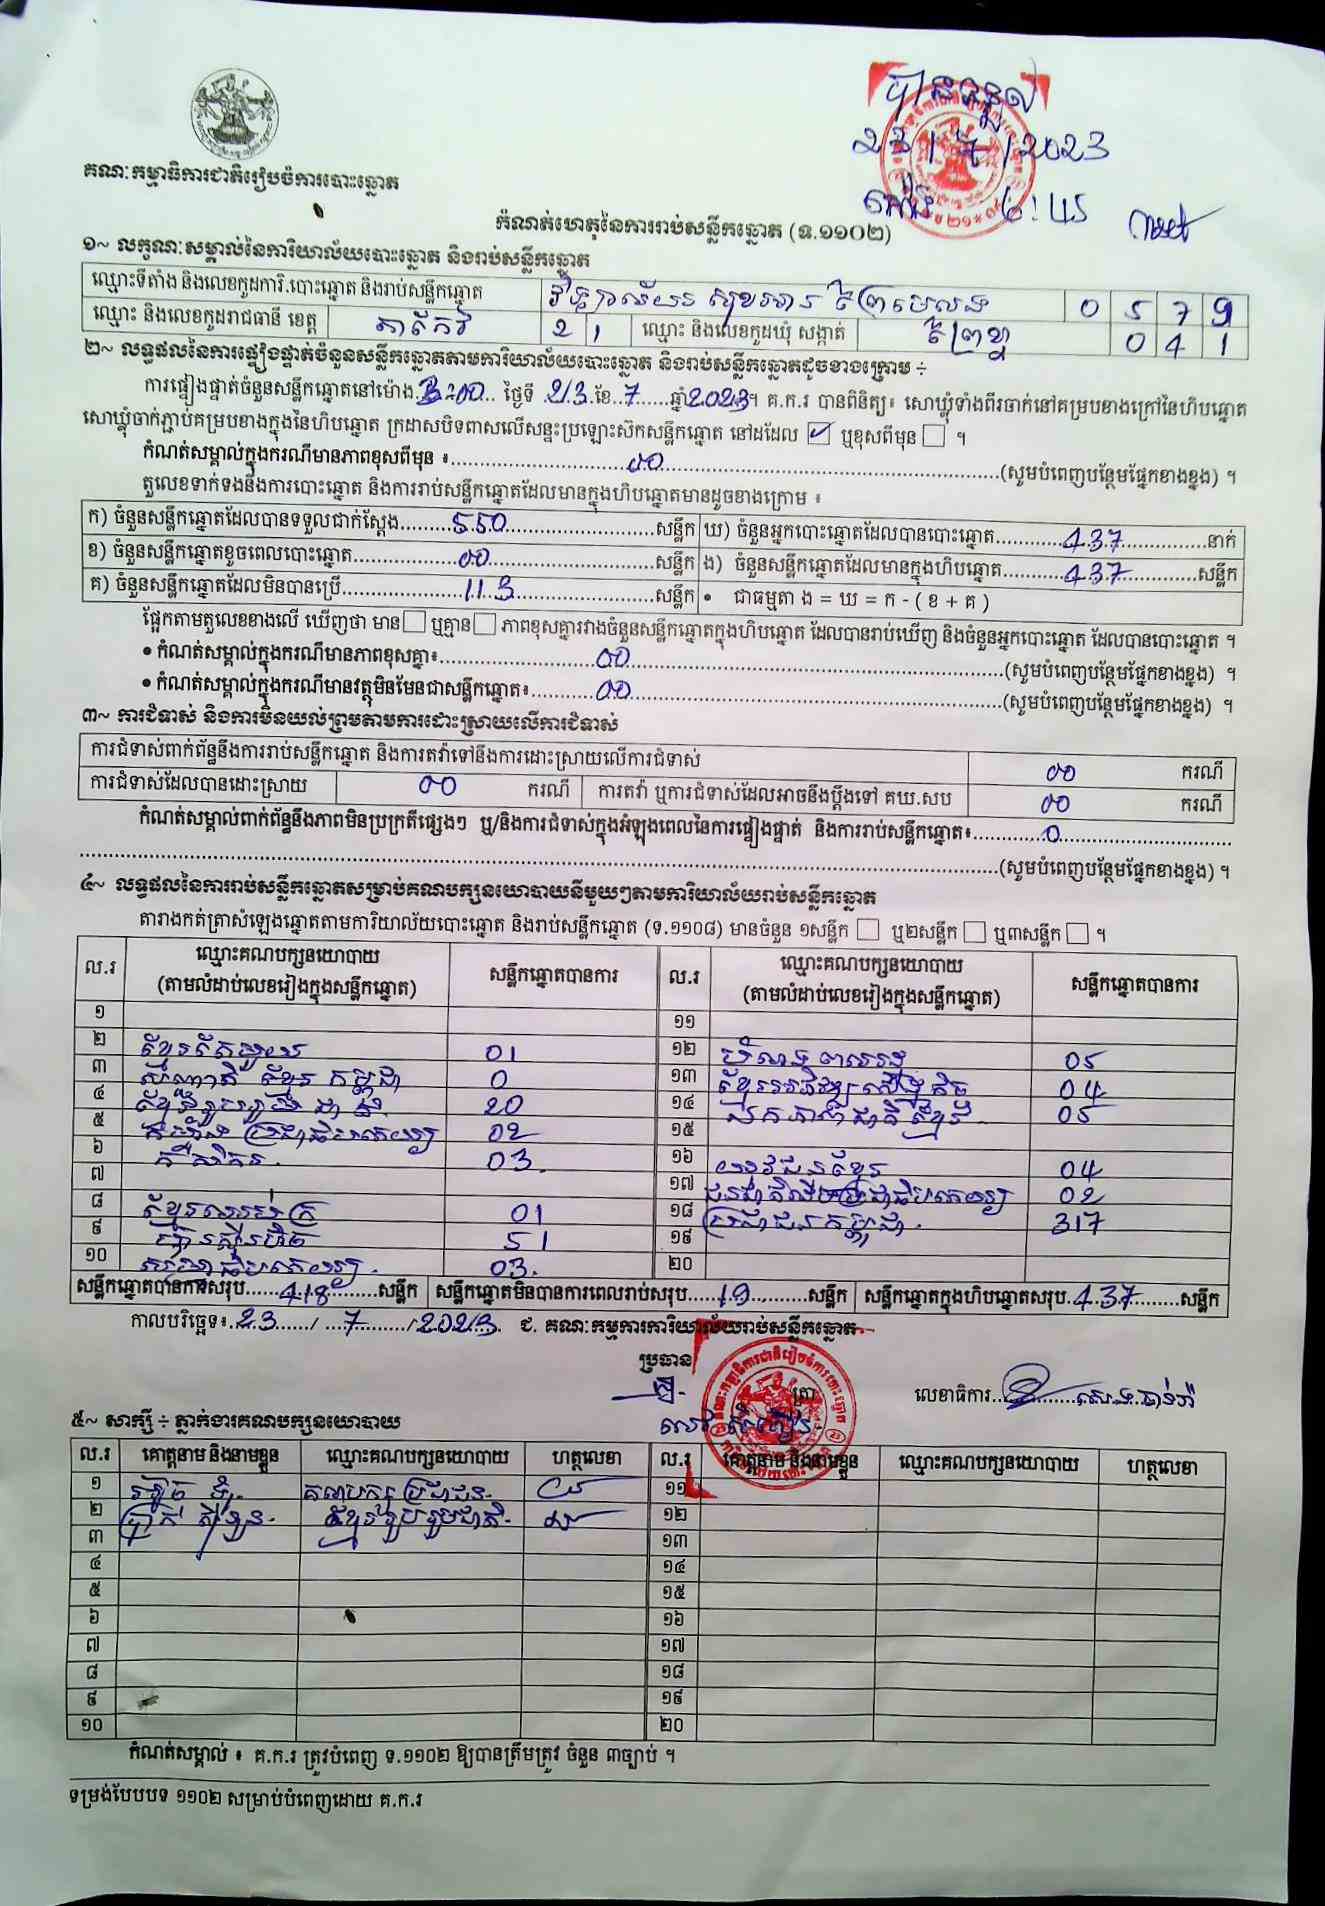 បានទទួល
23/7/2023
ម៉ោង 6:45
គណៈកម្មាធិការជាតិរៀបចំការបោះឆ្នោត
កំណត់ហេតុនៃការរាប់សន្លឹកឆ្នោត (ទ.១១០២)
១~ លក្ខណៈសម្គាល់នៃការិយាល័យបោះឆ្នោត និងរាប់សន្លឹកឆ្នោត
ឈ្មោះទីតាំង និងលេខកូដការិ.បោះឆ្នោត និងរាប់សន្លឹកឆ្នោត 0 5 7 9
ឈ្មោះ និងលេខកូដរាជធានី ខេត្ត តាកែវ 2 1 ឈ្មោះ និងលេខកូដឃុំ សង្កាត់ ព្រៃខ្លា 0 4 1
២~ លទ្ធផលនៃការផ្ទៀងផ្ទាត់ចំនួនសន្លឹកឆ្នោតតាមការិយាល័យបោះឆ្នោត និងរាប់សន្លឹកឆ្នោតដូចខាងក្រោម ÷
ការផ្ទៀងផ្ទាត់ចំនួនសន្លឹកឆ្នោតនៅម៉ោង 3:00 ថ្ងៃទី 23 ខែ 7 ឆ្នាំ2023។ គ.ក.រ បានពិនិត្យ៖ សោឃ្លុំទាំងពីរចាក់នៅគម្របខាងក្រៅនៃហិបឆ្នោត
សោឃ្លុំចាក់ភ្ជាប់គម្របខាងក្នុងនៃហិបឆ្នោត ក្រដាសបិទពាសលើសន្ទះប្រឡោះស៊កសន្លឹកឆ្នោត នៅដដែល ✓ ឬខុសពីមុន ។
កំណត់សម្គាល់ក្នុងករណីមានភាពខុសពីមុន ៖ 00 (សូមបំពេញបន្ថែមផ្នែកខាងខ្នង) ។
តួលេខទាក់ទងនឹងការបោះឆ្នោត និងការរាប់សន្លឹកឆ្នោតដែលមានក្នុងហិបឆ្នោតមានដូចខាងក្រោម ៖
ក) ចំនួនសន្លឹកឆ្នោតដែលបានទទួលជាក់ស្តែង 550 សន្លឹក ឃ) ចំនួនអ្នកបោះឆ្នោតដែលបានបោះឆ្នោត 437 នាក់
ខ) ចំនួនសន្លឹកឆ្នោតខូចពេលបោះឆ្នោត 00 សន្លឹក ង) ចំនួនសន្លឹកឆ្នោតដែលមានក្នុងហិបឆ្នោត 437 សន្លឹក
គ) ចំនួនសន្លឹកឆ្នោតដែលមិនបានប្រើ 113 សន្លឹក • ជាធម្មតា ង = ឃ = ក - ( ខ + គ )
ផ្អែកតាមតួលេខខាងលើ ឃើញថា មាន ឬគ្មាន ភាពខុសគ្នារវាងចំនួនសន្លឹកឆ្នោតក្នុងហិបឆ្នោត ដែលបានរាប់ឃើញ និងចំនួនអ្នកបោះឆ្នោត ដែលបានបោះឆ្នោត ។
• កំណត់សម្គាល់ក្នុងករណីមានភាពខុសគ្នា៖ 00 (សូមបំពេញបន្ថែមផ្នែកខាងខ្នង) ។
• កំណត់សម្គាល់ក្នុងករណីមានវត្ថុមិនមែនជាសន្លឹកឆ្នោត៖ 00 (សូមបំពេញបន្ថែមផ្នែកខាងខ្នង) ។
៣~ ការជំទាស់ និងការមិនយល់ព្រមតាមការដោះស្រាយលើការជំទាស់
ការជំទាស់ពាក់ព័ន្ធនឹងការរាប់សន្លឹកឆ្នោត និងការតវ៉ាទៅនឹងការដោះស្រាយលើការជំទាស់ 00 ករណី
ការជំទាស់ដែលបានដោះស្រាយ 00 ករណី ការតវ៉ា ឬការជំទាស់ដែលអាចនឹងប្តឹងទៅ គឃ.សប 00 ករណី
កំណត់សម្គាល់ពាក់ព័ន្ធនឹងភាពមិនប្រក្រតីផ្សេងៗ ឬ/និងការជំទាស់ក្នុងអំឡុងពេលនៃការផ្ទៀងផ្ទាត់ និងការរាប់សន្លឹកឆ្នោត៖ 0
(សូមបំពេញបន្ថែមផ្នែកខាងខ្នង) ។
៤~ លទ្ធផលនៃការរាប់សន្លឹកឆ្នោតសម្រាប់គណបក្សនយោបាយនីមួយៗតាមការិយាល័យរាប់សន្លឹកឆ្នោត
តារាងកត់ត្រាសំឡេងឆ្នោតតាមការិយាល័យបោះឆ្នោត និងរាប់សន្លឹកឆ្នោត (ទ.១១០៨) មានចំនួន ១សន្លឹក ឬ២សន្លឹក ឬ៣សន្លឹក ។
ល.រ ឈ្មោះគណបក្សនយោបាយ (តាមលំដាប់លេខរៀងក្នុងសន្លឹកឆ្នោត) សន្លឹកឆ្នោតបានការ ល.រ ឈ្មោះគណបក្សនយោបាយ (តាមលំដាប់លេខរៀងក្នុងសន្លឹកឆ្នោត) សន្លឹកឆ្នោតបានការ
១ ១១
២ ខ្មែរតែមួយ 01 ១២ 05
៣ 0 ១៣ 04
៤ 20 ១៤ 05
៥ 02 ១៥
៦ កសិករ 03 ១៦ យុវជនខ្មែរ 04
៧ ១៧ 02
៨ 01 ១៨ ប្រជាជនកម្ពុជា 317
៩ 51 ១៩
១០ 03 ២០
សន្លឹកឆ្នោតបានការសរុប 418 សន្លឹក សន្លឹកឆ្នោតមិនបានការពេលរាប់សរុប 19 សន្លឹក សន្លឹកឆ្នោតក្នុងហិបឆ្នោតសរុប 437 សន្លឹក
កាលបរិច្ឆេទ៖ 23 / 7 / 2023 ជ. គណៈកម្មការការិយាល័យរាប់សន្លឹកឆ្នោត
ប្រធាន ត្រា លេខាធិការ
៥~ សាក្សី ÷ ភ្នាក់ងារគណបក្សនយោបាយ
ល.រ គោត្តនាម និងនាមខ្លួន ឈ្មោះគណបក្សនយោបាយ ហត្ថលេខា ល.រ គោត្តនាម និងនាមខ្លួន ឈ្មោះគណបក្សនយោបាយ ហត្ថលេខា
១ គណបក្សប្រជាជន ១១
២ ១២
៣ ១៣
៤ ១៤
៥ ១៥
៦ ១៦
៧ ១៧
៨ ១៨
៩ ១៩
១០ ២០
កំណត់សម្គាល់ ៖ គ.ក.រ ត្រូវបំពេញ ទ.១១០២ ឱ្យបានត្រឹមត្រូវ ចំនួន ៣ច្បាប់ ។
ទម្រង់បែបបទ ១១០២ សម្រាប់បំពេញដោយ គ.ក.រ